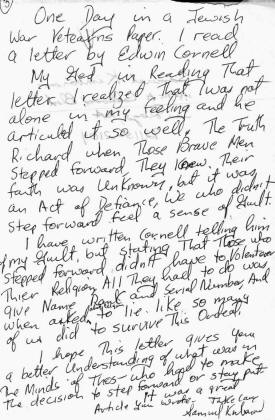 One Day in a Jewish
War Veterans Paper. I read
a letter by Edwin Cornell
My God in Reading That
letter I realized That I was not
alone in my feeling and he
articuld it so well. The Truth
Richard when Those Brave Men
Stepped forward, They Knew Their
faith was Unknown, but it was
an Act of Defiance, We who didn't
Step forward feel a sense of Guilt.
I have written Cornell telling him
of my Guilt, but stating That Those who
Stepped forward, didn't have to Volenteer
Thier Religion. All They had to do was
give Name Rank and Serial Number. And
when asked to lie. like so many
of us did to survive This Ordeal.
I hope This letter gives You
a better Understanding of what was in
The Minds of Thos who had to make
The decision to step forward or stay put
It was a great
Article You Wrote. Take Care
Samuel